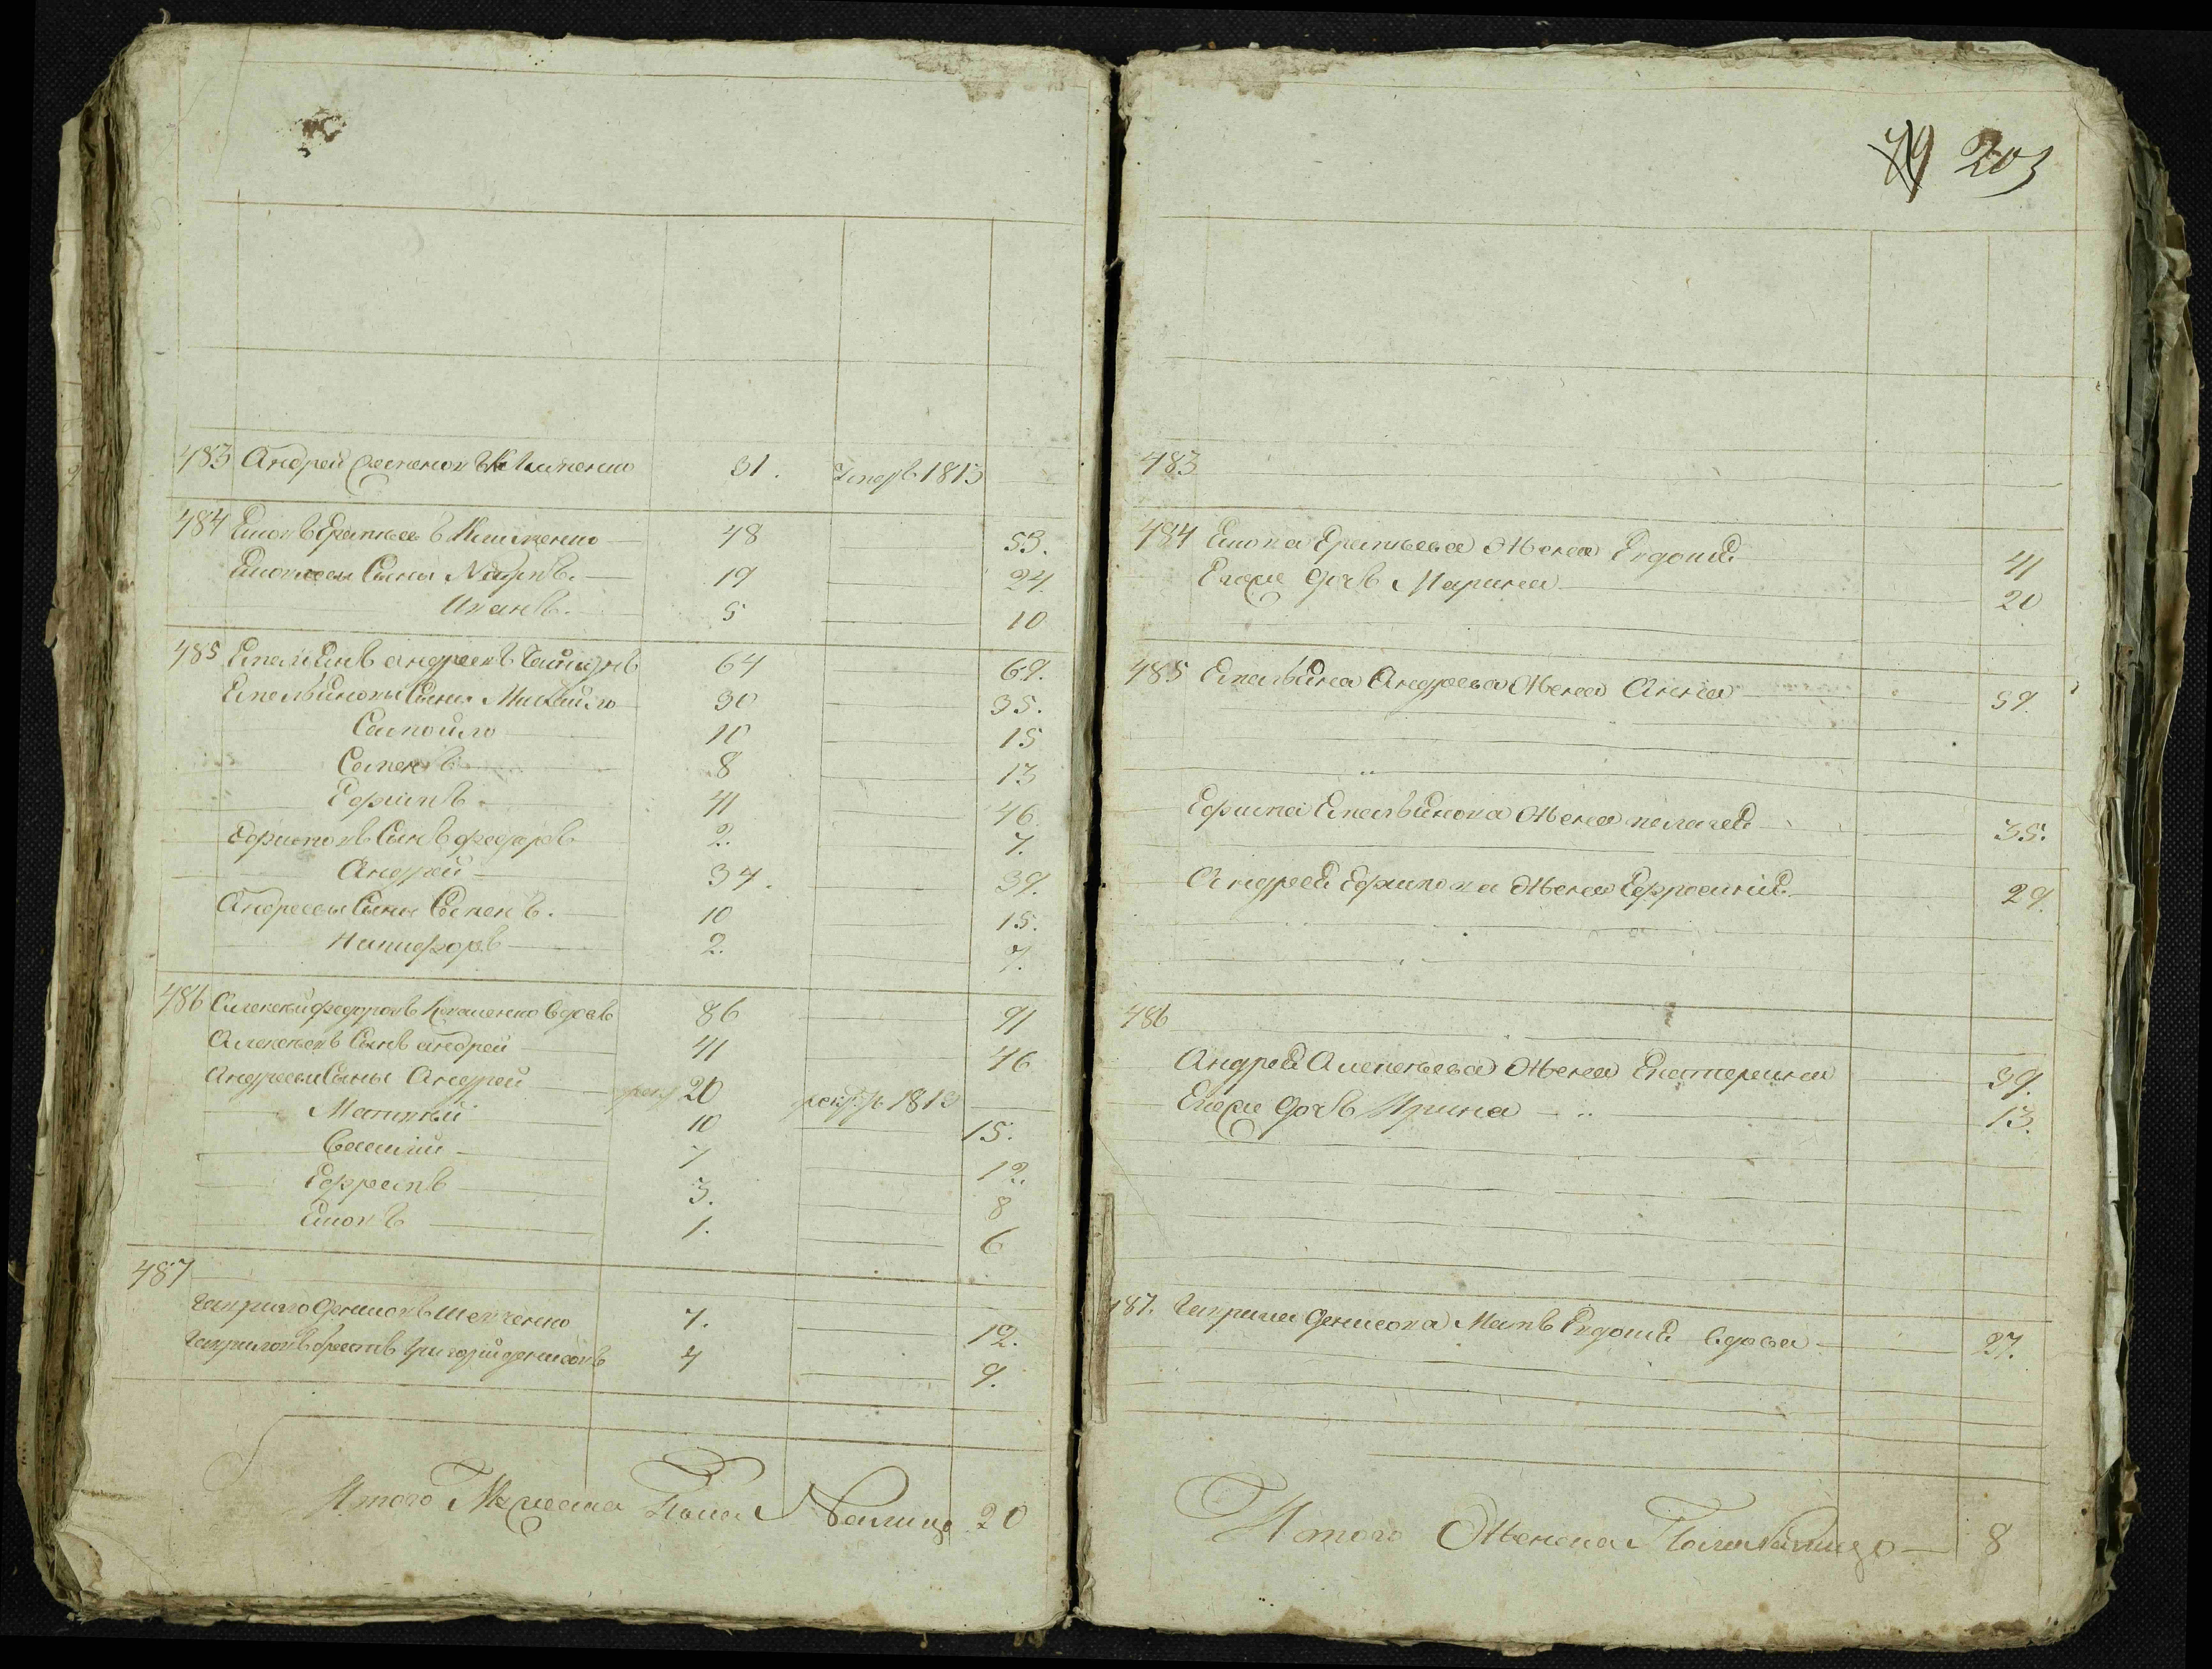 483 Андрей Семеновъ Клименко 31. умеръ 1813
484 Яковъ Клименко 48 53.
Яковлевы Сыны 19 24.
Иванъ. 5 10
485 Емельянъ андреевъ 64 69.
Емельяновы Сыны Михайло 30 35.
Самойло 10 15
Семенъ 8 13
Ефимъ 41 46.
Ефимовъ Сынъ федоръ 2. 7.
Андрей 34. 39.
Андреевы Сыны Семенъ. 10 15.
Никифоръ 2. 7.
486 Алексей федоровъ вдовъ 86 91
Алексеевъ Сынъ андрей 41 46
Андреевы Сыны Андрей 20 1813
Матвей 10 15.
Василий 7 12.
Ефремъ 3. 8
Яковъ 1. 6
487
гаврило денисовъ шевченко 7. 12.
гавриловъ братъ григорий денисовъ 4 9.
Итого Мужеска Пола Налицо 20
79 203
483
484 Якова Жена Евдокия 41
Ихже дочь Марина 20
485 Емельяна Андреева Жена Анна 59.
Ефима Емельянова Жена пелагея 35.
Андрея Ефимова Жена Ефросиния 29.
486
Андрея Алексеева Жена Екатерина 39.
Ихже дочь Ирина 13.
487. гаврила денисова Мать Евдокия вдова 27.
Итого Женска Пола Налицо 8